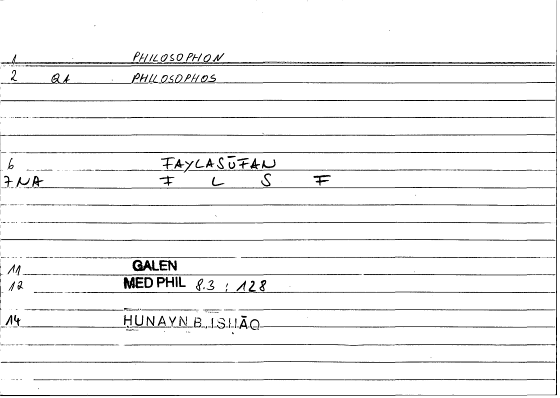 1 PHILOSOPHON
2 QA PHILOSOPHOS
6 FAYLASŪFAN
7 NA F L S F
11 GALEN
12 MED PHIL 8.3 : 128
14 HUNAYN B. ISḤĀQ